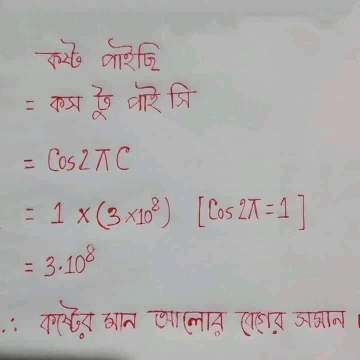 কষ্ট পাইছি
= কস টু পাই সি
= Cos2πC
= 1 ×(3×10⁸) [Cos 2π=1]
= 3·10⁸
∴ কষ্টের মান আলোর বেগের সমান।